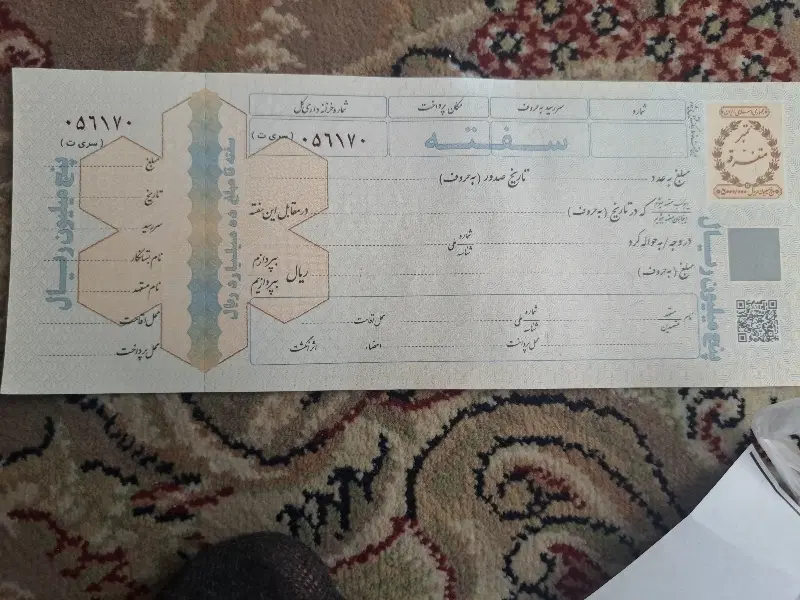 شماره
سررسید به حروف
مکان پرداخت
شماره خزانه داری کل
سفته
۰۵۶۱۷۰ (سری ت)
تمبر
متفرقه
مبلغ به عدد
تاریخ صدور (به حروف)
که در تاریخ (به حروف)
در مقابل این سفته
در وجه/به حواله کرد
شماره ملی
شناسه
بپردازم
بپردازیم
مبلغ (به حروف)
ریال
نام
متعهد
متعهدین
شماره ملی
شناسه
محل اقامت
محل پرداخت
امضاء
اثر انگشت
پنج میلیون ریال
سفته تا مبلغ
ریال
۰۵۶۱۷۰
(سری ت)
مبلغ
تاریخ
سررسید
نام بستانکار
نام متعهد
محل اقامت
محل پرداخت
پنج میلیون ریال